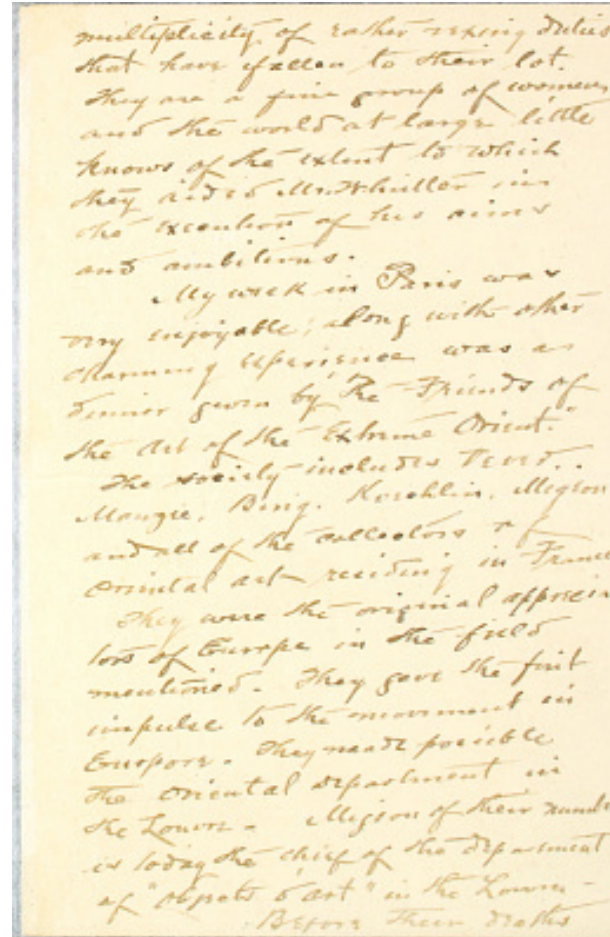 multiplicity of rather vexing duties
that have fallen to their lot.
They are a fine group of women
and the world at large little
knows of the extent to which
they aided Mr. Whistler in
the execution of his aims
and ambitions.
My week in Paris was
very enjoyable; along with other
charming experience was a
dinner given by "The Friends of
the Art of the Extreme Orient."
The society includes Vever.
Manzie, Bing. Koechlin. Migeon
and all of the collectors of
oriental art residing in France
They were the original apprecia
tors of Europe in the field
mentioned. They gave the first
impulse to the movement in
Europe. They made possible
the oriental department in
the Louvre - Migeon of their numbe
is today the chief of the department
of "objets d'art" in the Louvre -
Before their deaths